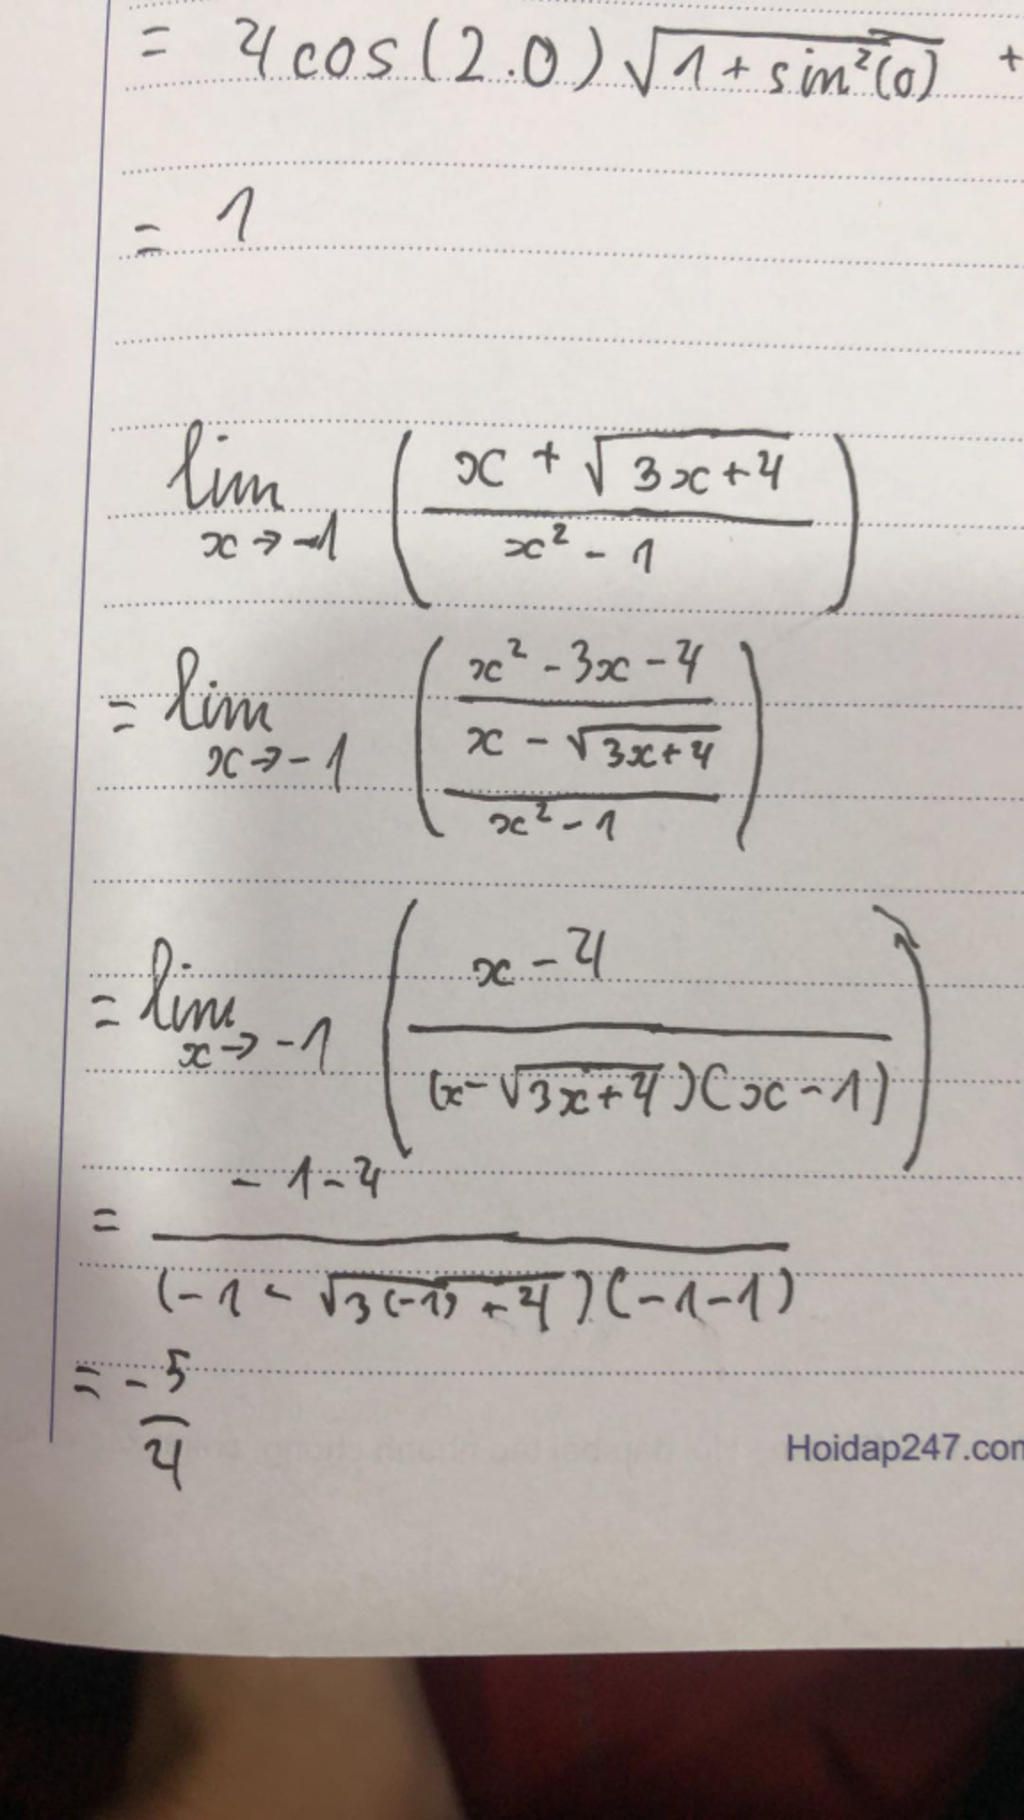 = 4cos(2.0)√(1+sin²(0)) +
= 1
lim x→-1 ((x+√(3x+4))/(x²-1))
= lim x→-1 (((x²-3x-4)/(x-√(3x+4)))/(x²-1))
= lim x→-1 ((x-4)/((x-√(3x+4))(x-1)))
= (-1-4)/((-1-√(3(-1)+4))(-1-1))
= -5/4
Hoidap247.com